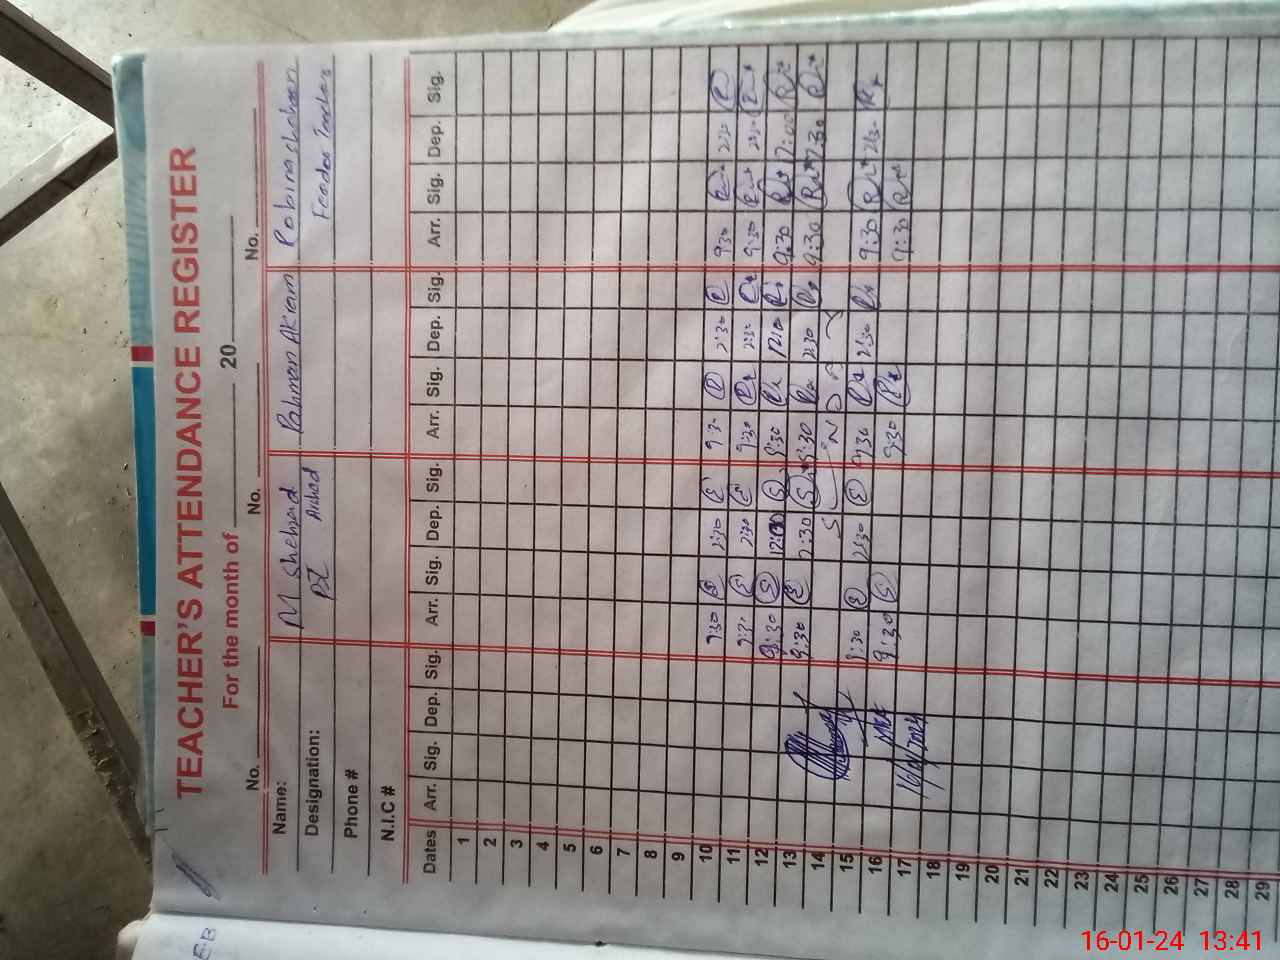 TEACHER'S ATTENDANCE REGISTER
For the month of 20
No. No. No. No.
Name: M Shehzad Rahman Akram Robina Shaheen
Designation: PST Arshad Feeder Teacher
Phone #
N.I.C #
Dates Arr. Sig. Dep. Sig. Arr. Sig. Dep. Sig. Arr. Sig. Dep. Sig. Arr. Sig. Dep. Sig.
1
2
3
4
5
6
7
8
9
10 9:30 2:30 9:30 2:30 9:30 2:30
11 9:30 2:30 9:30 2:30 9:30 2:30
12 9:30 12:00 9:30 12:00 9:30
13 9:30 2:30 9:30 2:30 9:30 2:30
14 S U N D A Y
15 9:30 2:30 9:30 2:30 9:30 2:30
16 9:30 9:30 9:30
17
18 16/1/2024
19
20
21
22
23
24
25
26
27
28
29
EB
16-01-24 13:41